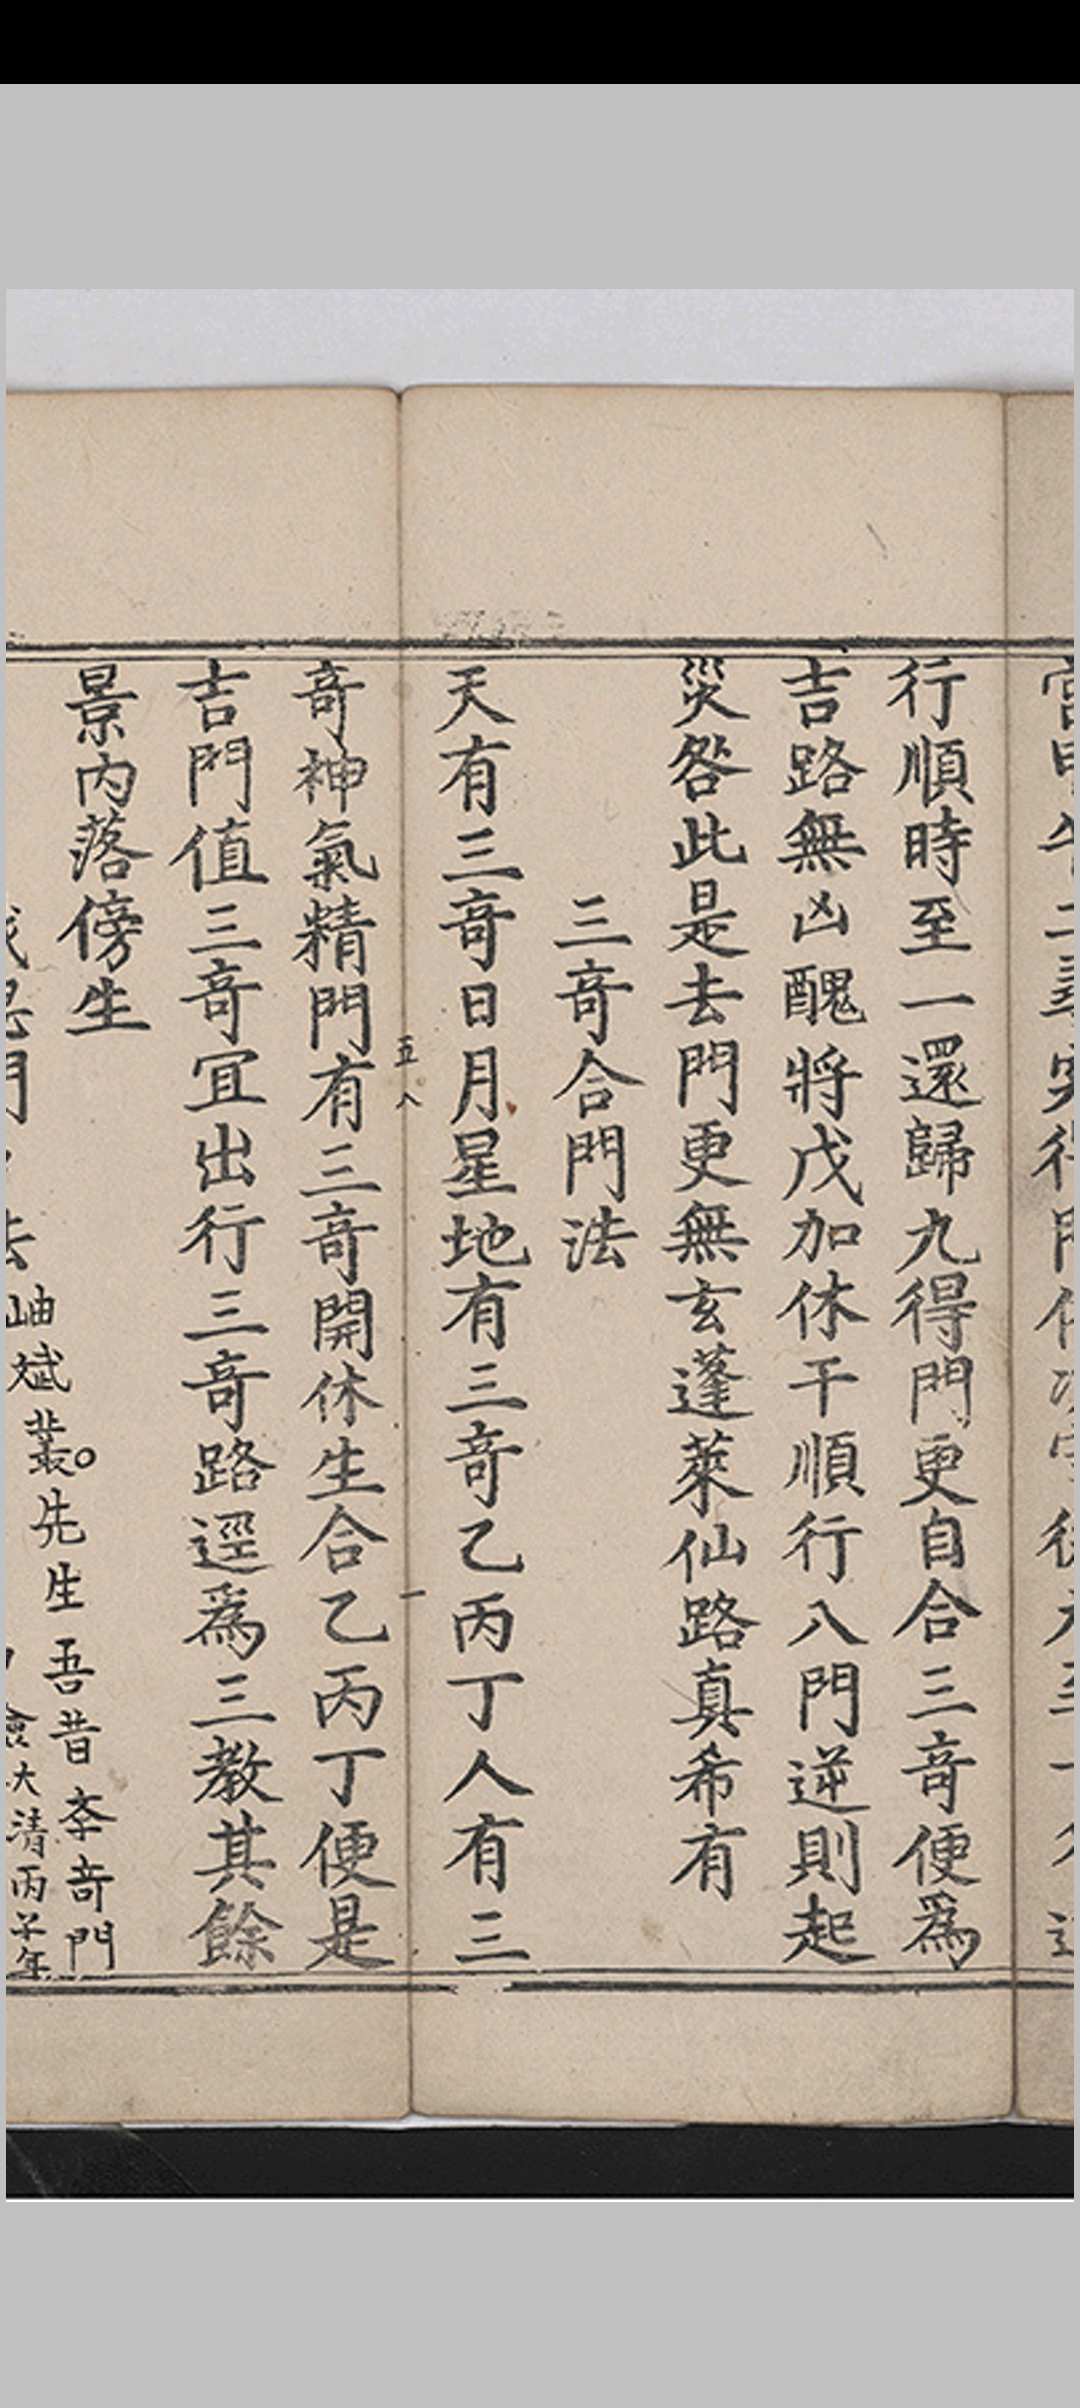 行順時至一還歸九得門更自合三竒便爲
吉路無凶醜將戊加休干順行八門逆則起
災咎此是去門更無玄蓬萊仙路真希有
三竒合門法
天有三竒日月星地有三竒乙丙丁人有三
竒神氣精門有三竒開休生合乙丙丁便是
五八 一
吉門值三竒冝出行三竒路逕爲三教其餘
景內落傍生
先生吾昔 竒門
大清丙子年